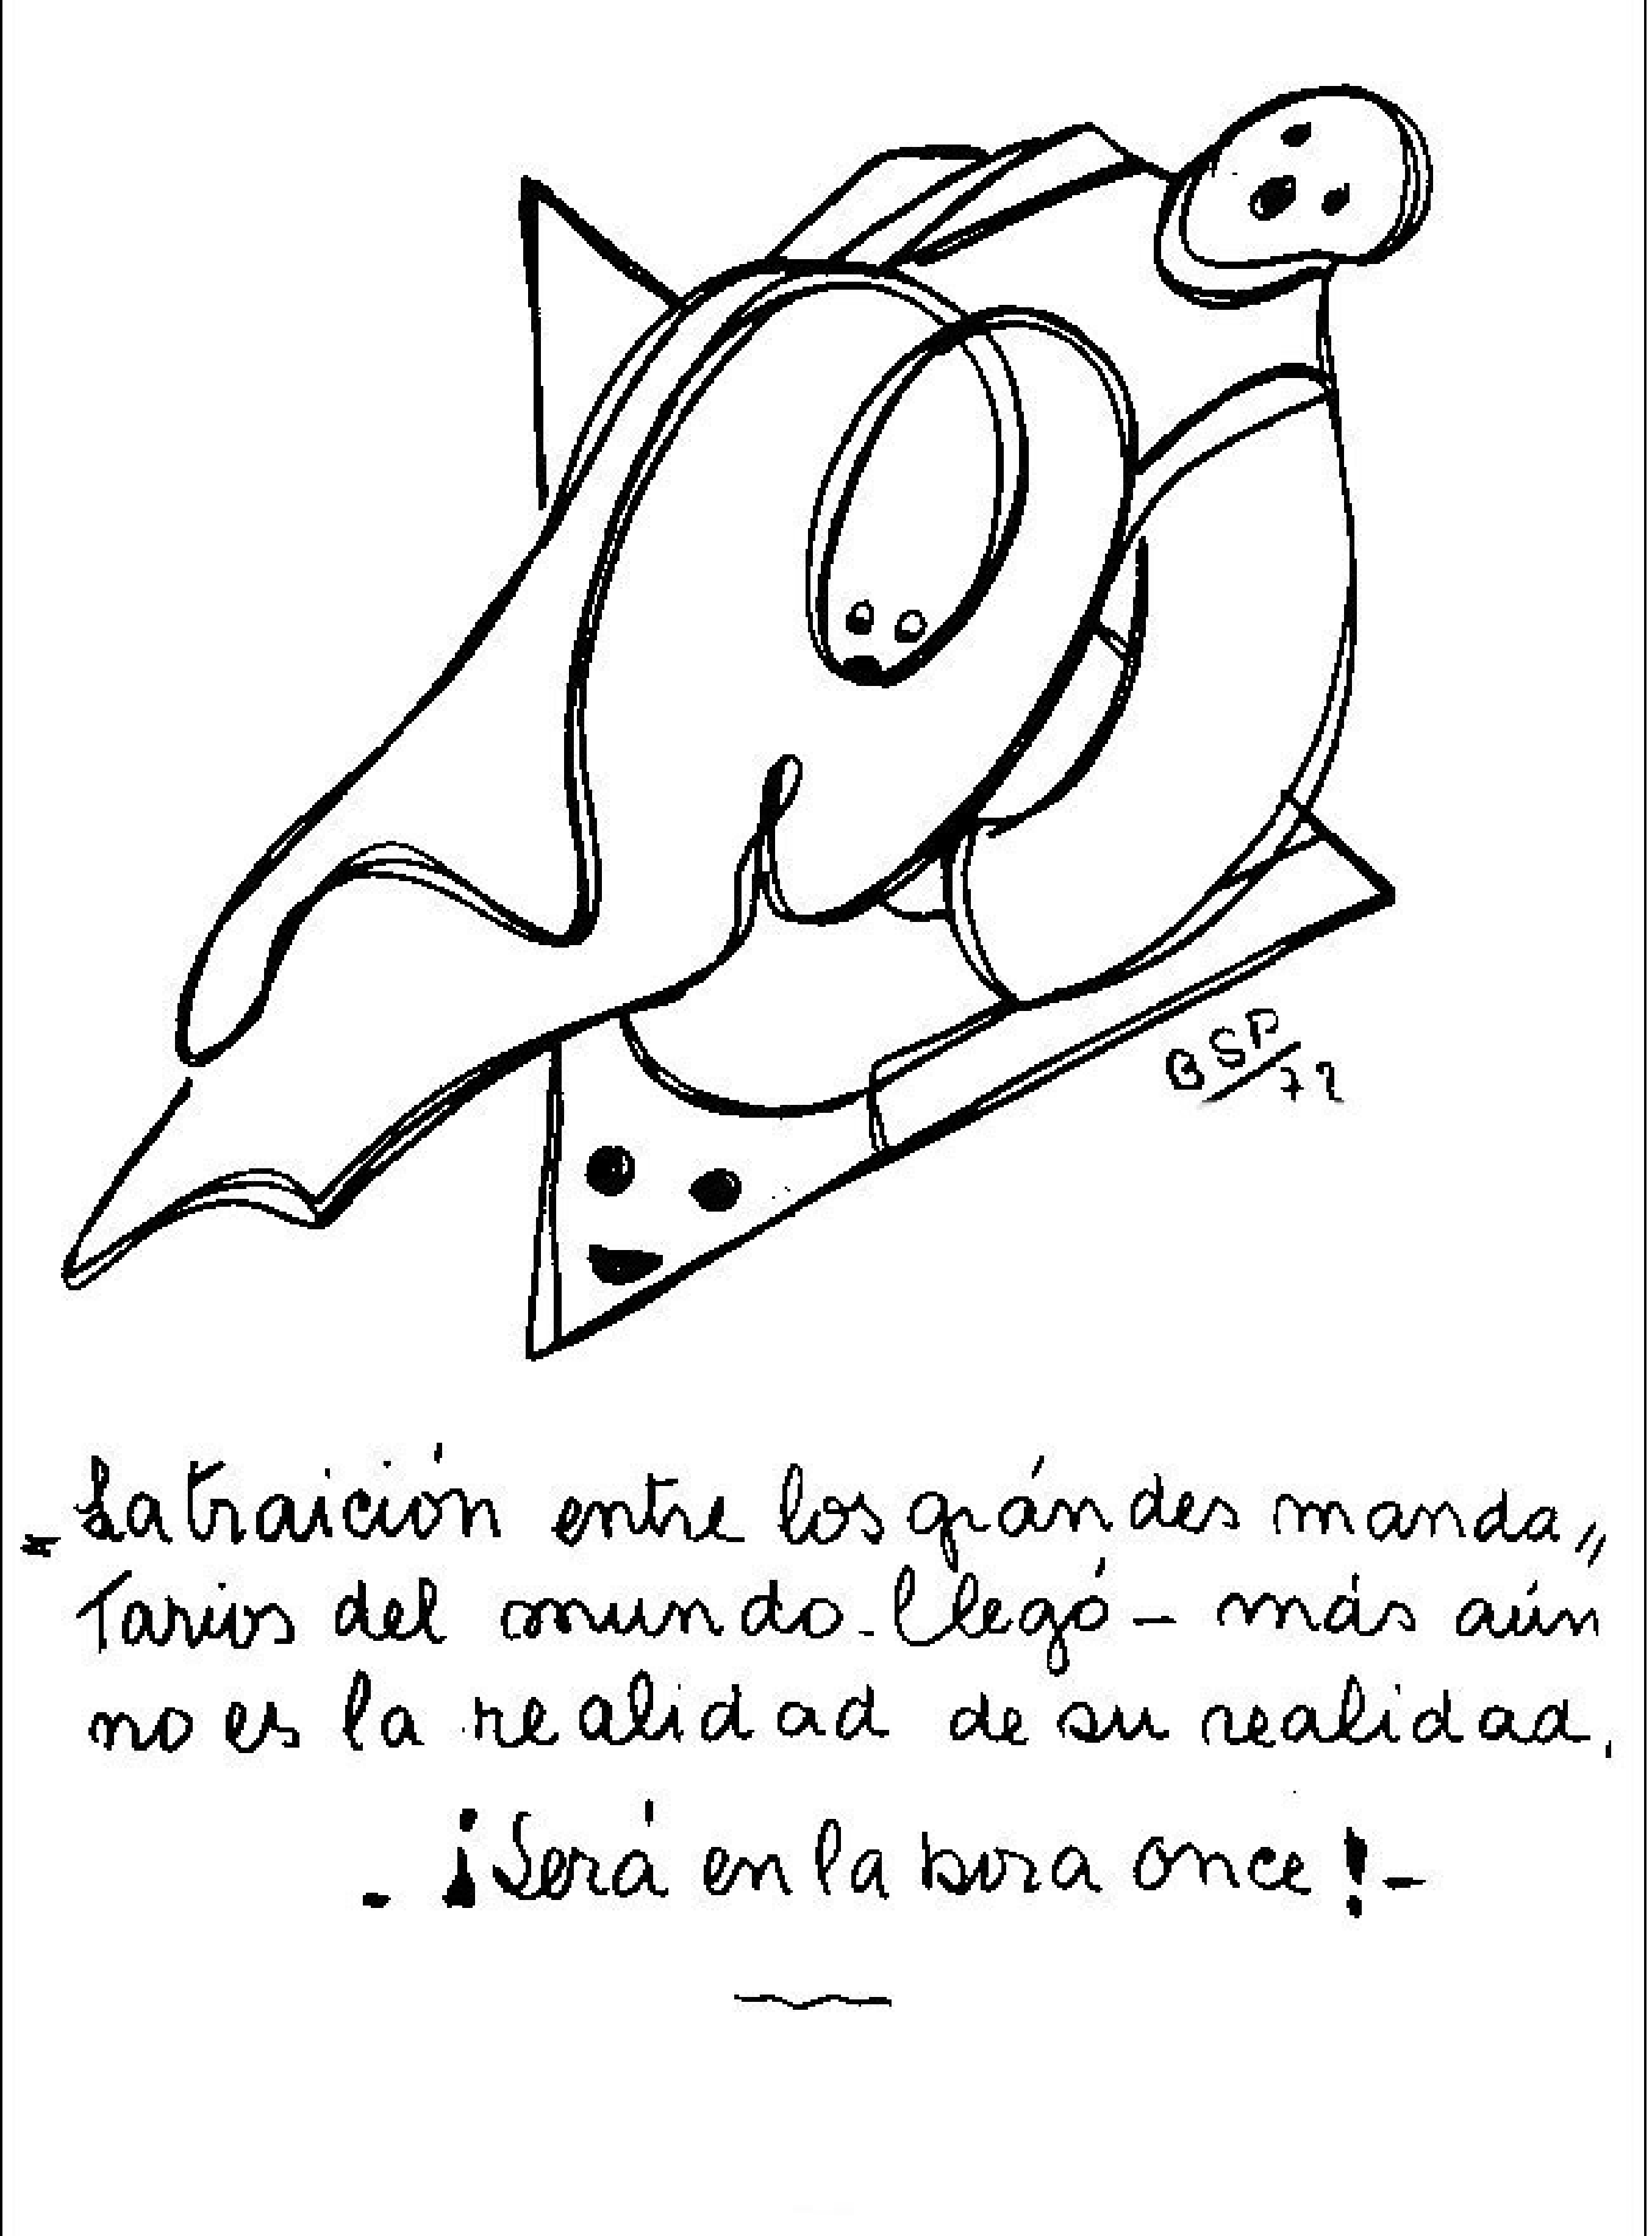 BSP
/72
"La traición entre los grándes manda„
tarios del mundo - llegó - más aún
no es la realidad de su realidad.
- ¡Será en la hora once! -